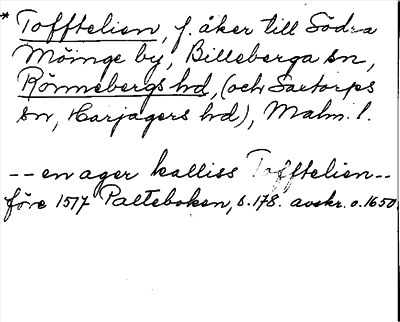 * Tofftelien, f. åker till Södra
Möinge by, Billeberga sn,
Rönnebergs hd, (och Saxtorps
sn, Harjagers hd), Malm. l.
-- en ager kalliss Tofftelien --
före 1517 Palteboken, s. 178. avskr. o. 1650